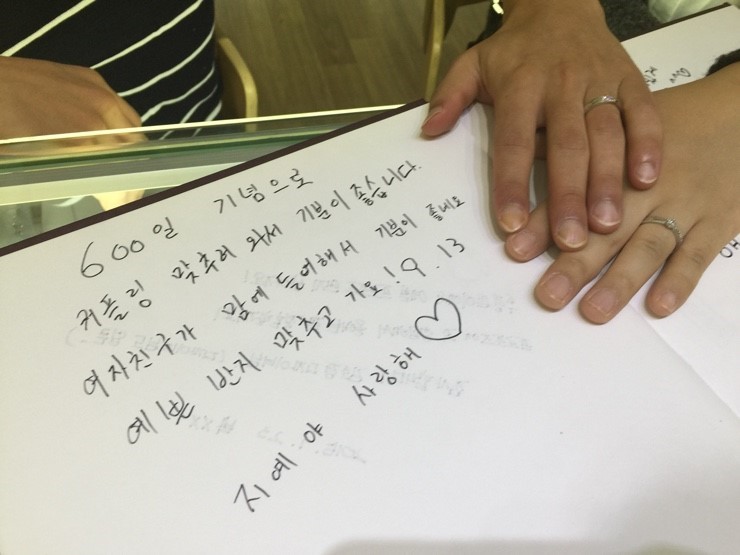 600일 기념으로
커플링 맞추러 와서 기분이 좋습니다.
여자친구가 맘에 들어해서 기분이 좋네요
예쁜 반지 맞추고 가요! 9.13
지예야 사랑해 ♡